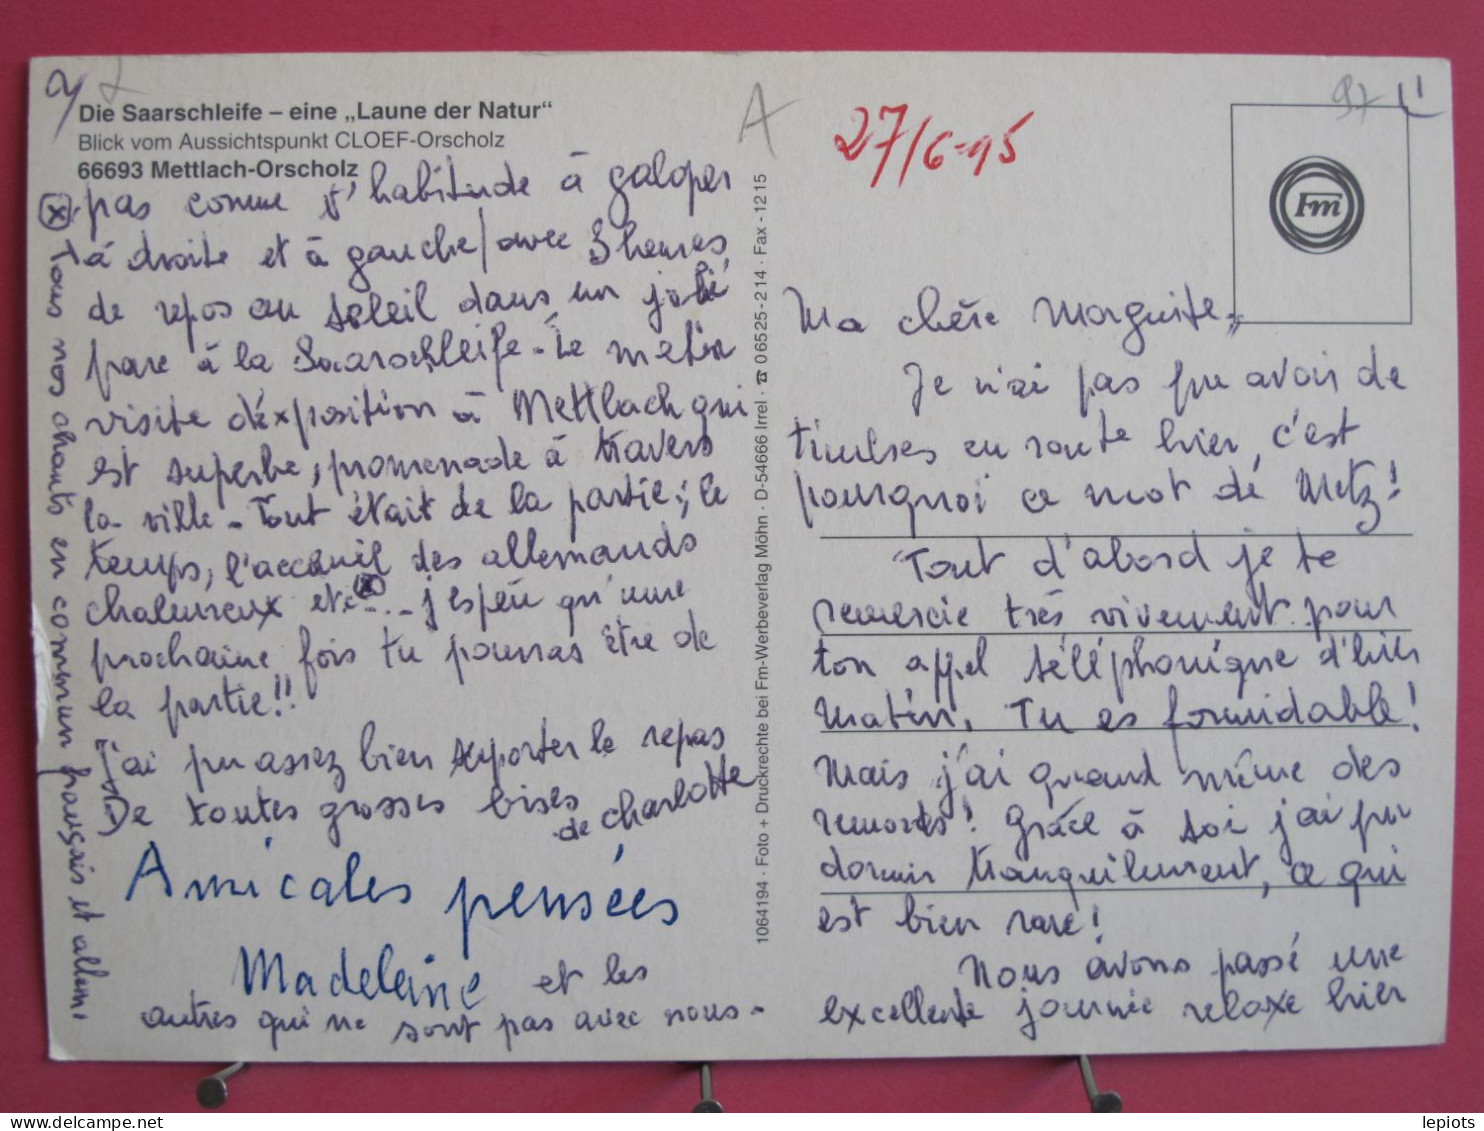 Die Saarschleife – eine „Laune der Natur“
Blick vom Aussichtspunkt CLOEF-Orscholz
66693 Mettlach-Orscholz
A
27/6-95
97
Fm
Ma chère Marguerite,
Je n'ai pas pu avoir de
timbres en route hier, c'est
pourquoi ce mot de Metz!
Tout d'abord je te
remercie très vivement pour
ton appel téléphonique d'hier
matin. Tu es formidable!
Mais j'ai quand même des
remords! Grâce à toi j'ai pu
dormir tranquilement, ce qui
est bien rare!
Nous avons passé une
excellente journée relaxe hier
pas comme d'habitude à galoper
à droite et à gauche, avec 3 heures
de repos au soleil dans un joli
parc à la Saarschleife. Le matin
visite d'exposition à Mettlach qui
est superbe, promenade à travers
la ville. Tout était de la partie; le
temps, l'accueil des allemands
chaleureux etc (x)... j'espère qu'une
prochaine fois tu pourras être de
la partie!!
J'ai pu assez bien supporter le repas
De toutes grosses bises
de Charlotte
Amicales pensées
Madeleine et les
autres qui ne sont pas avec nous.
(x) Tous nos chants en commun français et allem.
1064194 · Foto + Druckrechte bei Fm-Werbeverlag Möhn · D-54666 Irrel · ☎ 06525-214 · Fax - 1215